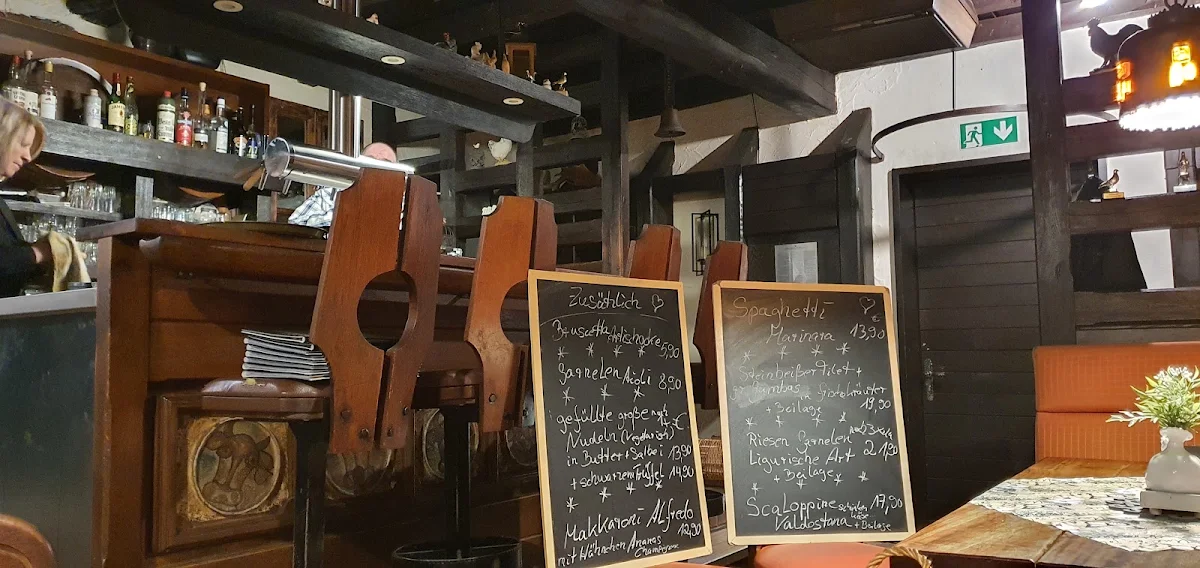 Zusätzlich
Bruscetta Artischocke 5,90
* * * *
Garnelen Aioli 8,90
* * *
gefüllte große
Nudeln (Vegetarisch)
in Butter + Salbei 13,90
+ schwarzem Trüffel 14,90
* * * *
Makkaroni Alfredo 12,90
mit Hühnchen Ananas
Champignon
Spaghetti €
Marinara 13,90
* * * *
Steinbeißer Filet +
Gambas in
+ Beilage 19,90
* * * *
Riesen Garnelen
Ligurische Art 21,90
+ Beilage
* * *
Scaloppine Schinken 17,00
Valdostana Käse + Beilage